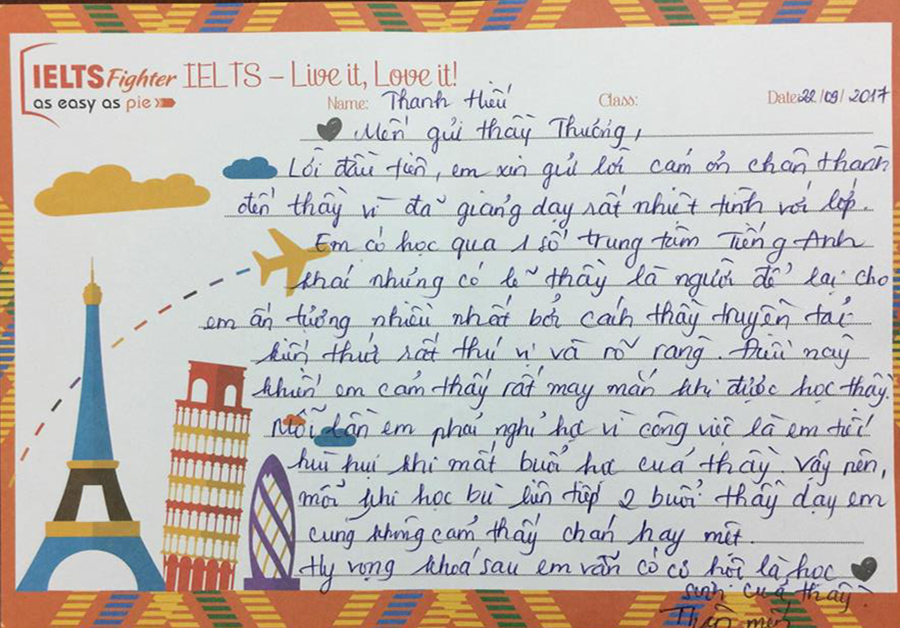 IELTS Fighter IELTS – Live it, Love it!
as easy as pie
Name: Thanh Hiếu Class: Date: 22/09/2017
Mến gửi thầy Thường,
Lời đầu tiên, em xin gửi lời cảm ơn chân thành
đến thầy vì đã giảng dạy rất nhiệt tình với lớp.
Em có học qua 1 số trung tâm Tiếng Anh
khác nhưng có lẽ thầy là người để lại cho
em ấn tượng nhiều nhất bởi cách thầy truyền tải
kiến thức rất thú vị và rõ ràng. Điều này
khiến em cảm thấy rất may mắn khi được học thầy.
Mỗi lần em phải nghỉ học vì công việc là em tiếc
hùi hụi khi mất buổi học của thầy. Vậy nên,
mỗi khi học bù liên tiếp 2 buổi thầy dạy em
cũng không cảm thấy chán hay mệt.
Hy vọng khoá sau em vẫn có cơ hội là học
sinh của thầy.
Thân mến